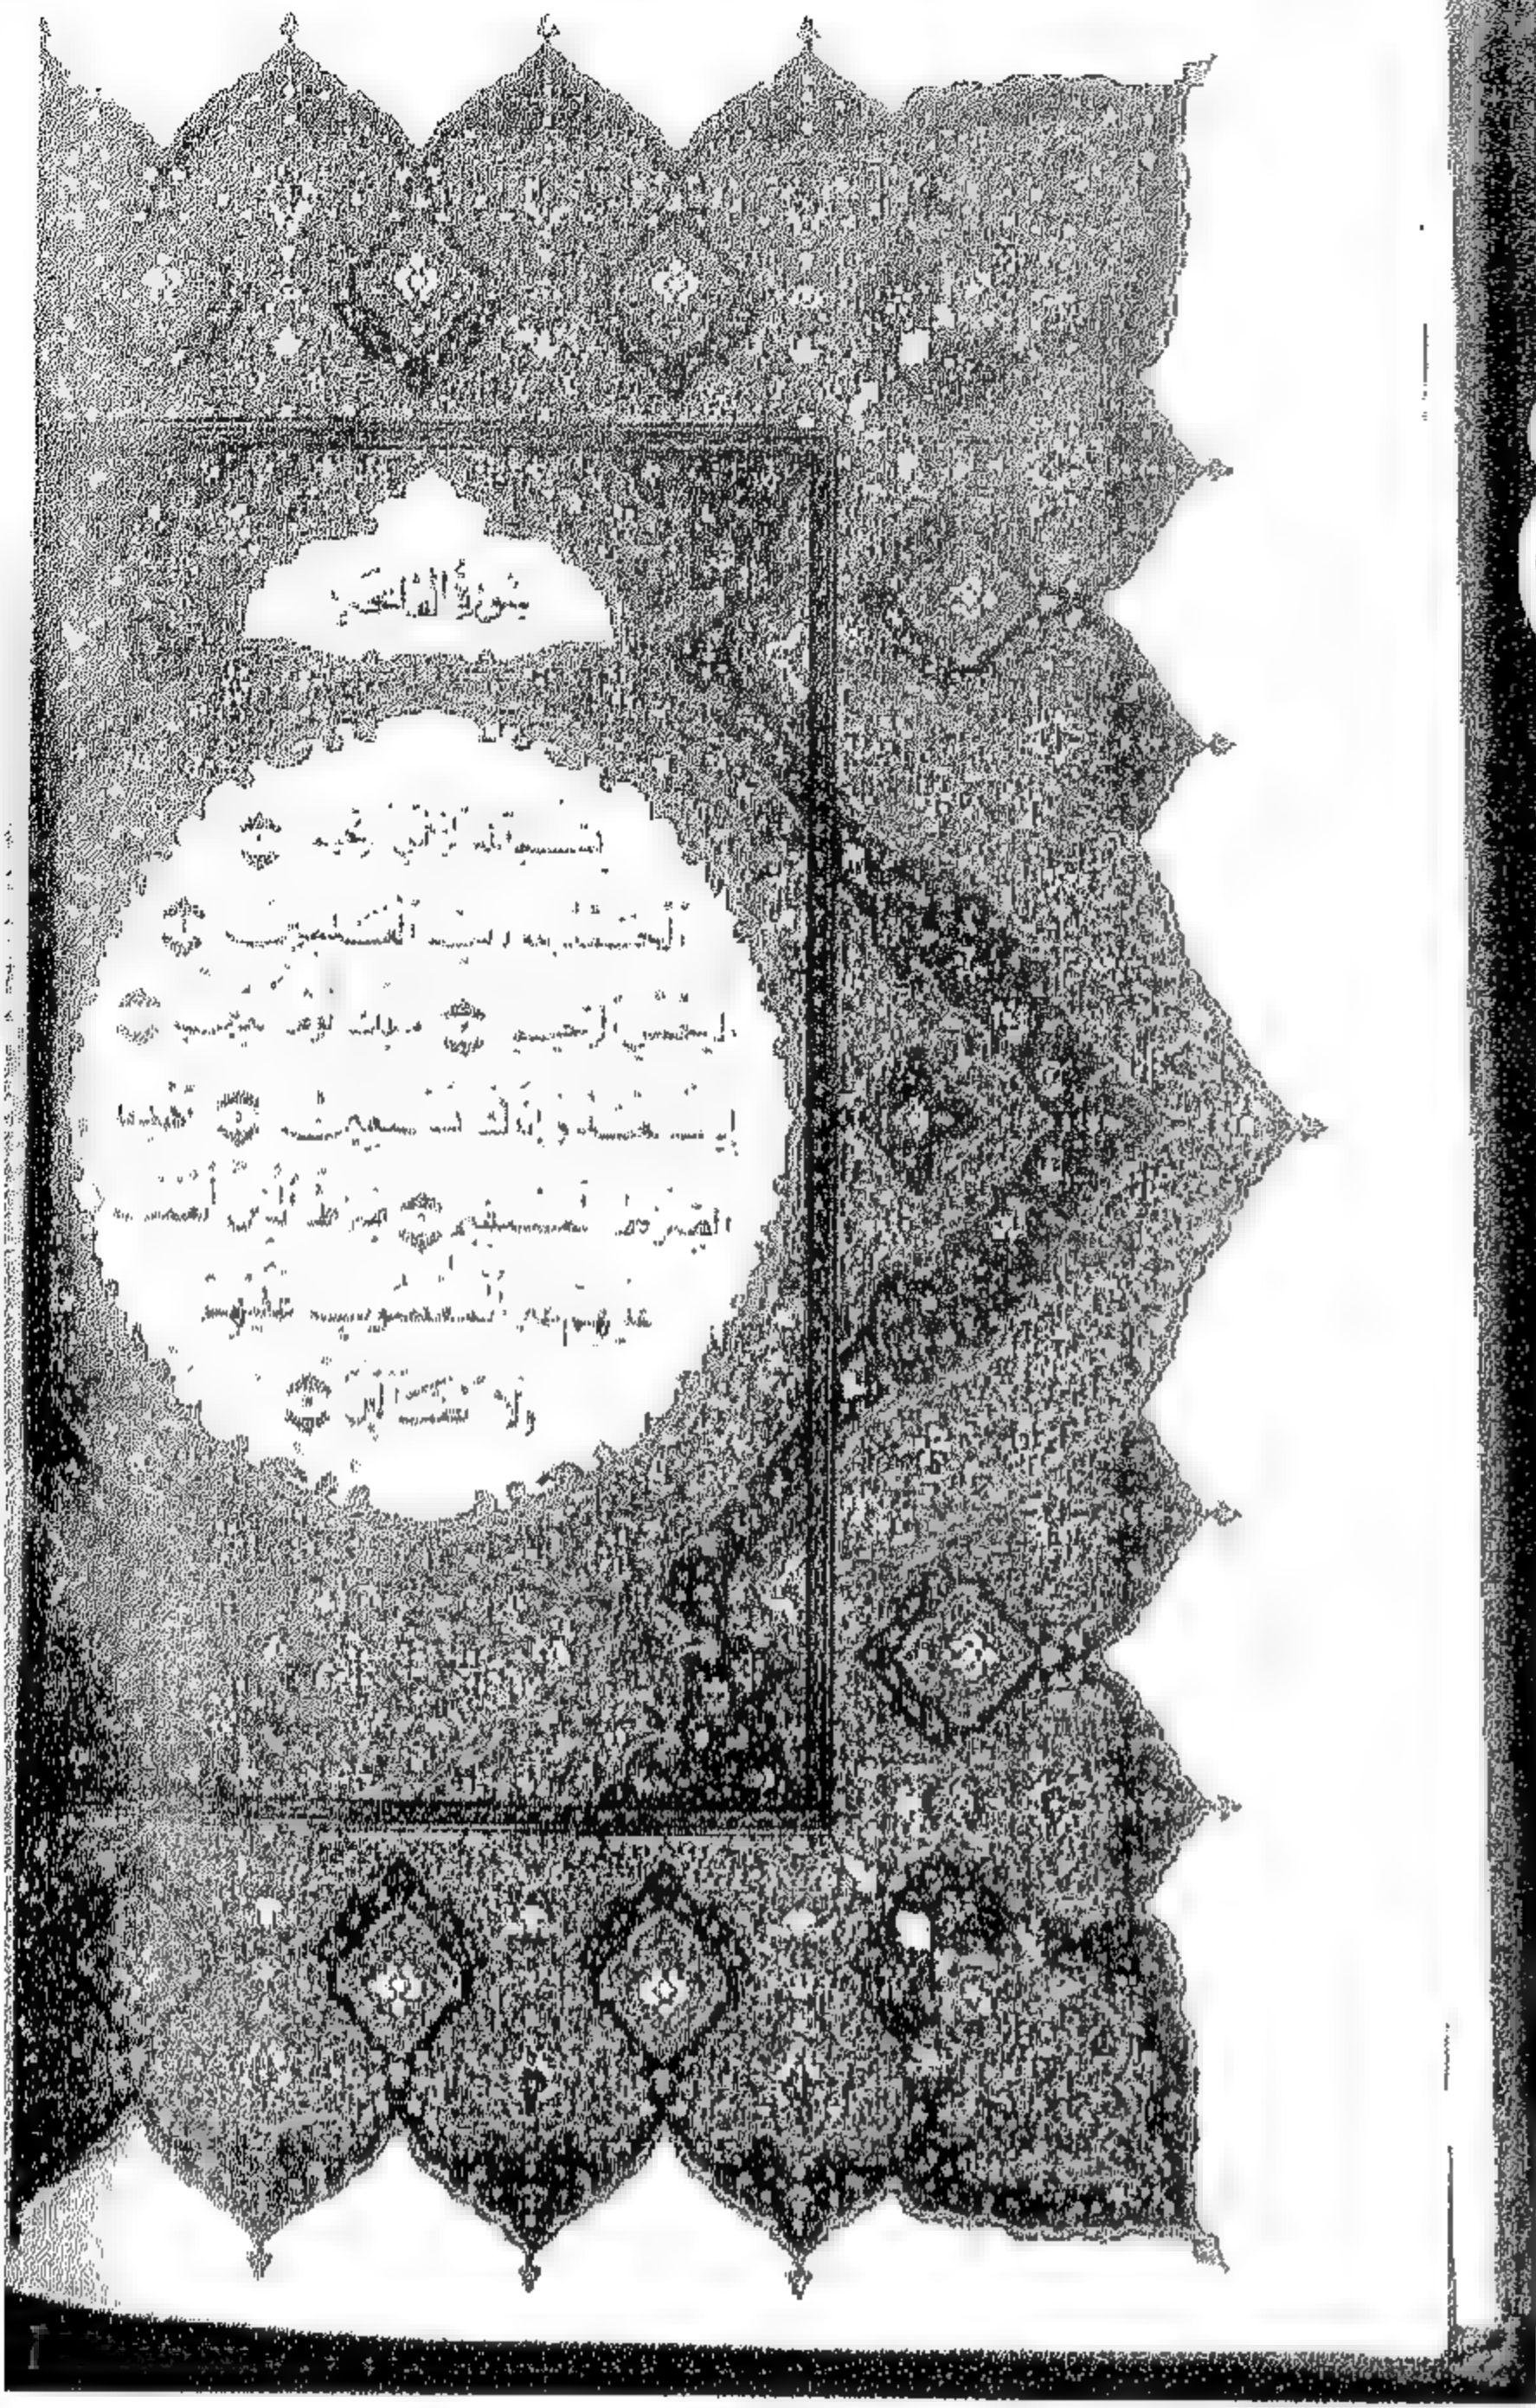 سورة الفاتحة
بسم الله الرحمن الرحيم
الحمد لله رب العالمين
الرحمن الرحيم مالك يوم الدين
إياك نعبد وإياك نستعين اهدنا
الصراط المستقيم صراط الذين أنعمت
عليهم غير المغضوب عليهم
ولا الضالين